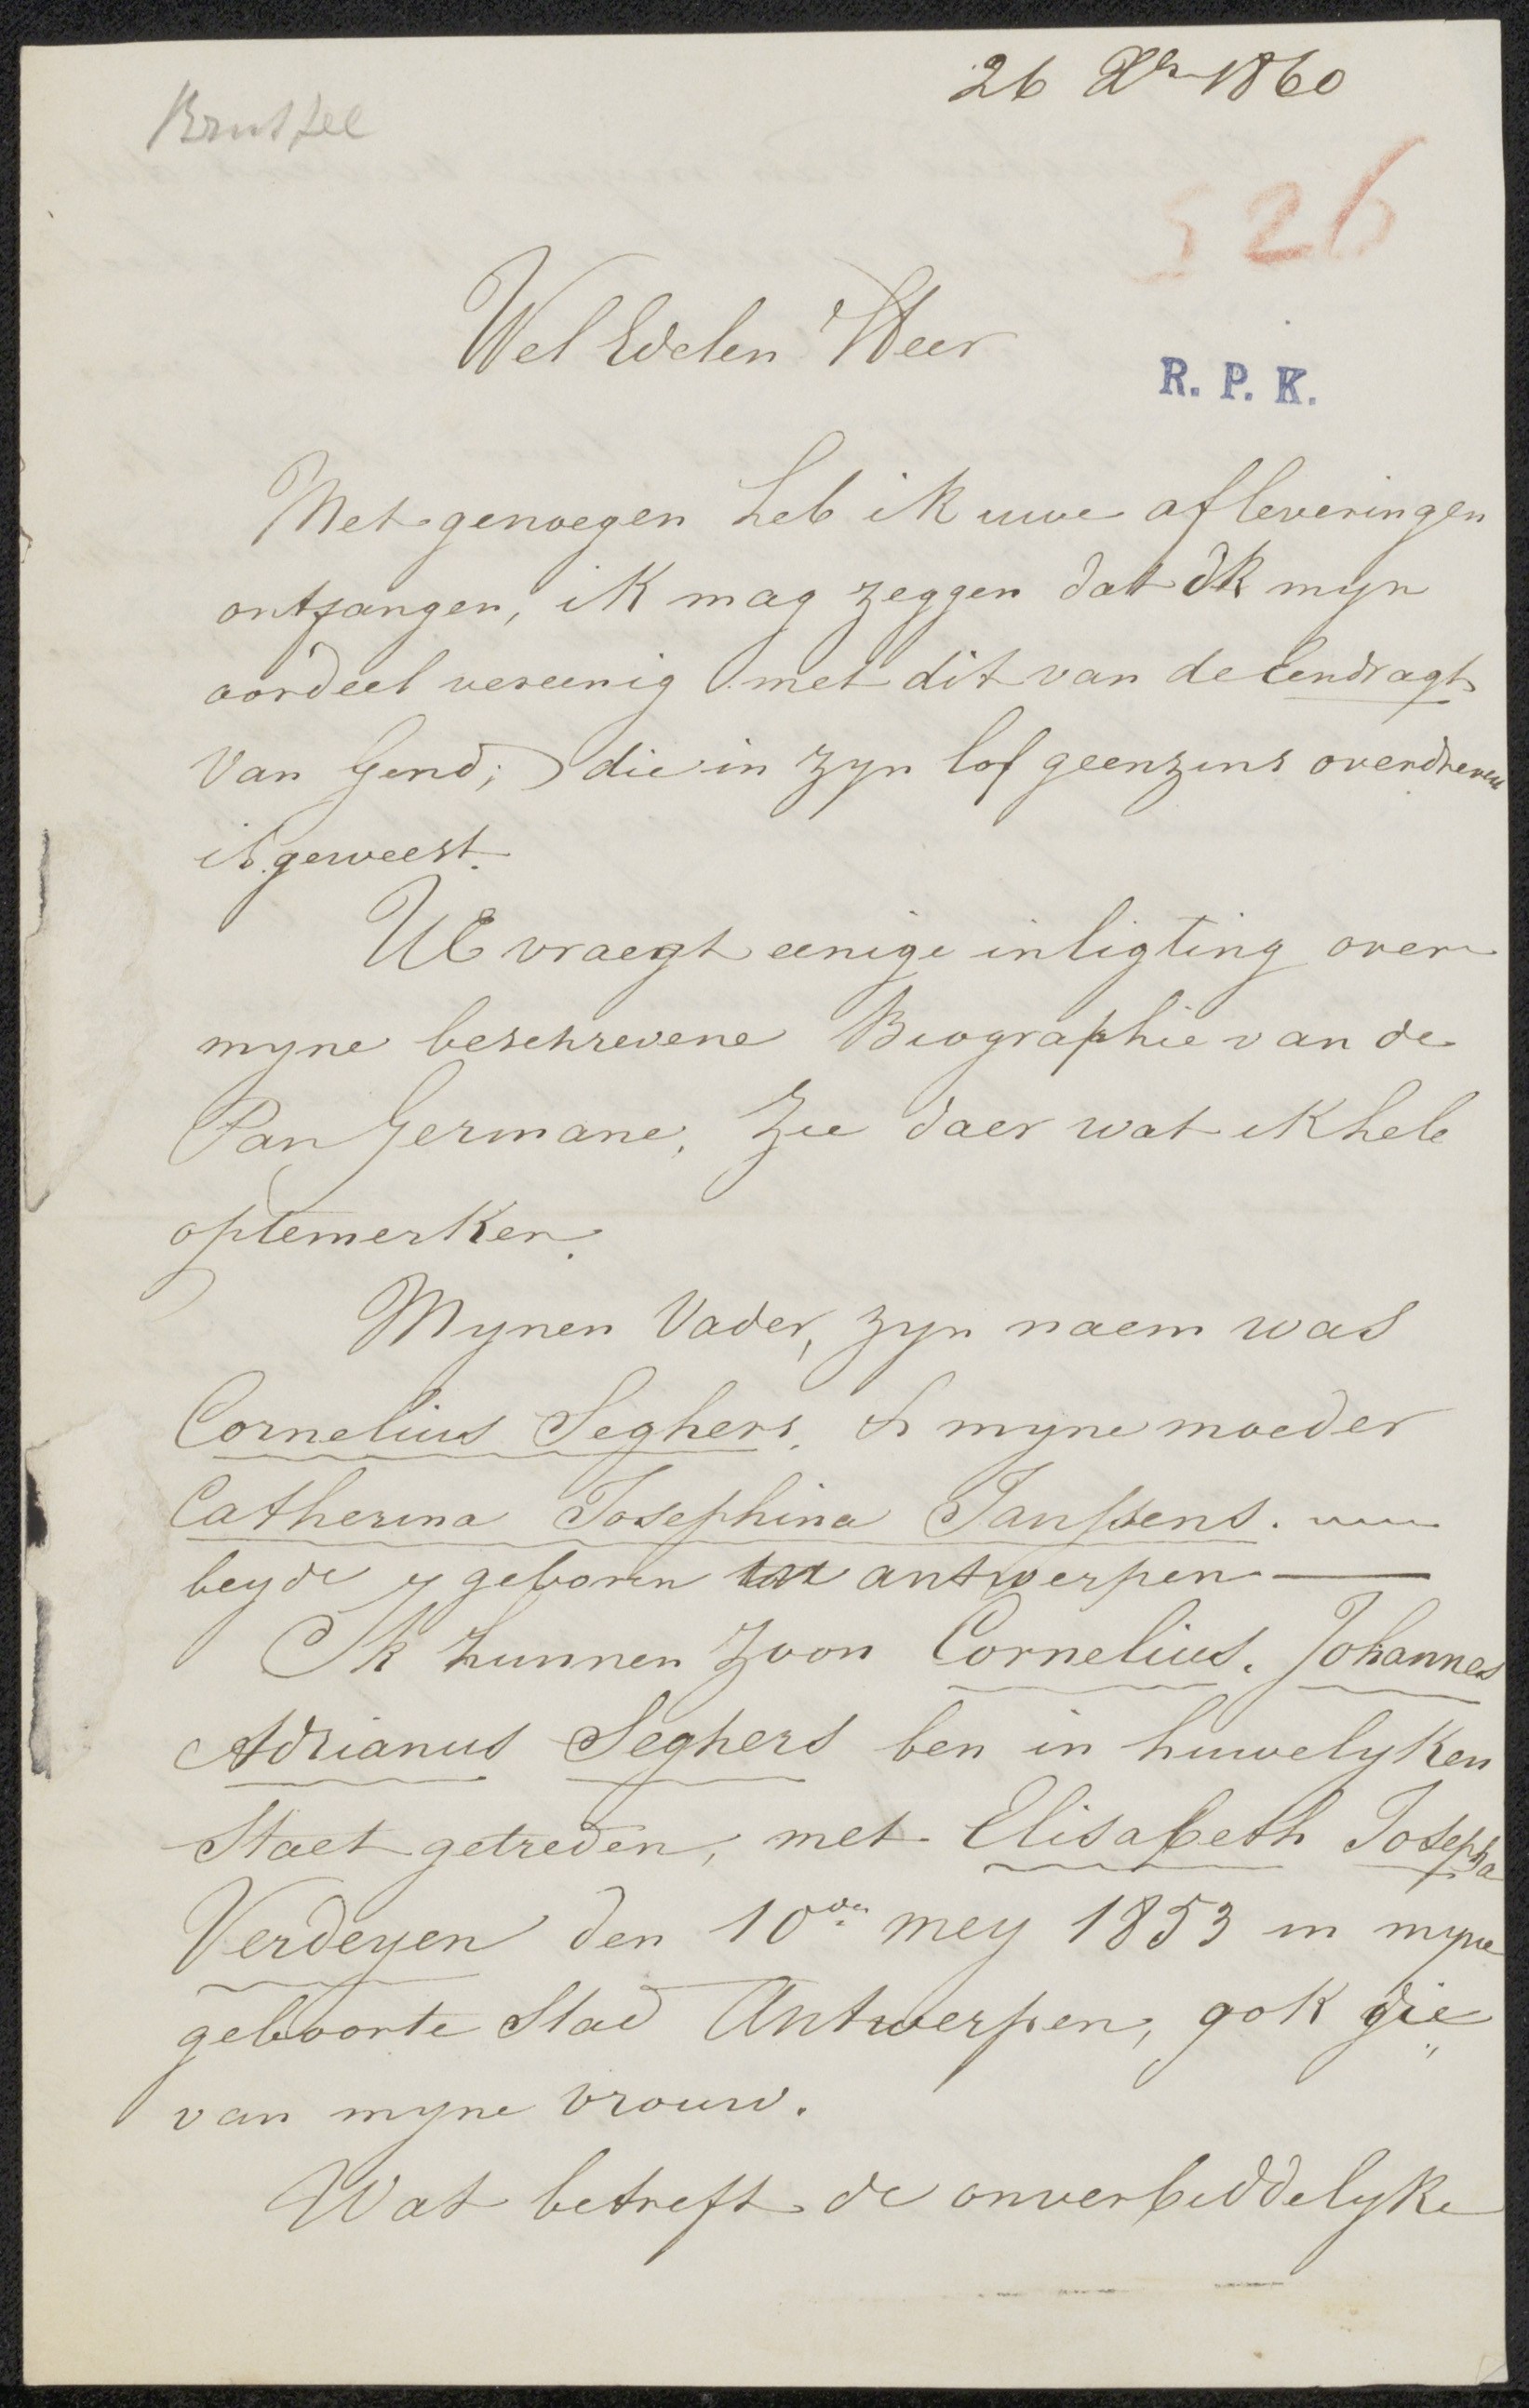 26 Xr 1860
Brussel
526
Wel Edelen Heer
R. P. K.
Met genoegen heb ik uwe afleveringen
ontfangen, ik mag zeggen dat ik myn
oordeel vereenig met dit van de Eendragt
van Gend; die in zyn lof geenzins overdreven
is geweest.
UE vraegt eenige inligting over
myne beschrevene Biographie van de
Pan Germane, Zie daer wat ik heb
optemerken.
Mynen Vader, zyn naem was
Cornelius Seghers, & myne moeder
Catherina Josephina Janssens.
beyde geboren tot antwerpen
Ik hunnen zoon Cornelius. Johannes
Adrianus Seghers ben in huwelyken
Staet getreden, met Elisabeth Josepha
Verdeyen den 10den mey 1853 in myne
geboorte Stad Antwerpen, ook die
van myne vrouw.
Wat betreft de onverbiddelyke